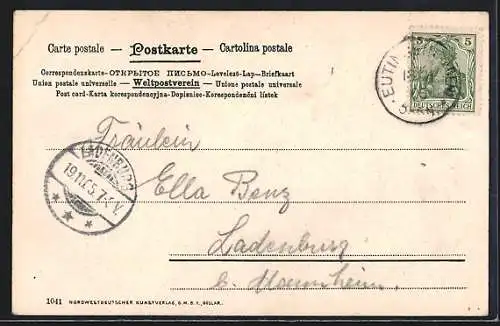 Carte postale — Postkarte — Cartolina postale
Correspondenzkarte-ОТКРЫТОЕ ПИСЬМО-Levelező-Lap-Briefkaart
Union postale universelle — Weltpostverein — Unione postale universale
Post card-Karta korespondencyjna-Dopisnice-Korespondenční lístek
5 5
DEUTSCHES REICH
EUTIN
LADENBURG
19.11.05. 7-8 V.
Fräulein
Ella Benz
Ladenburg
b. Mannheim.
1041 NORDWESTDEUTSCHER KUNSTVERLAG, G.M.B.H.